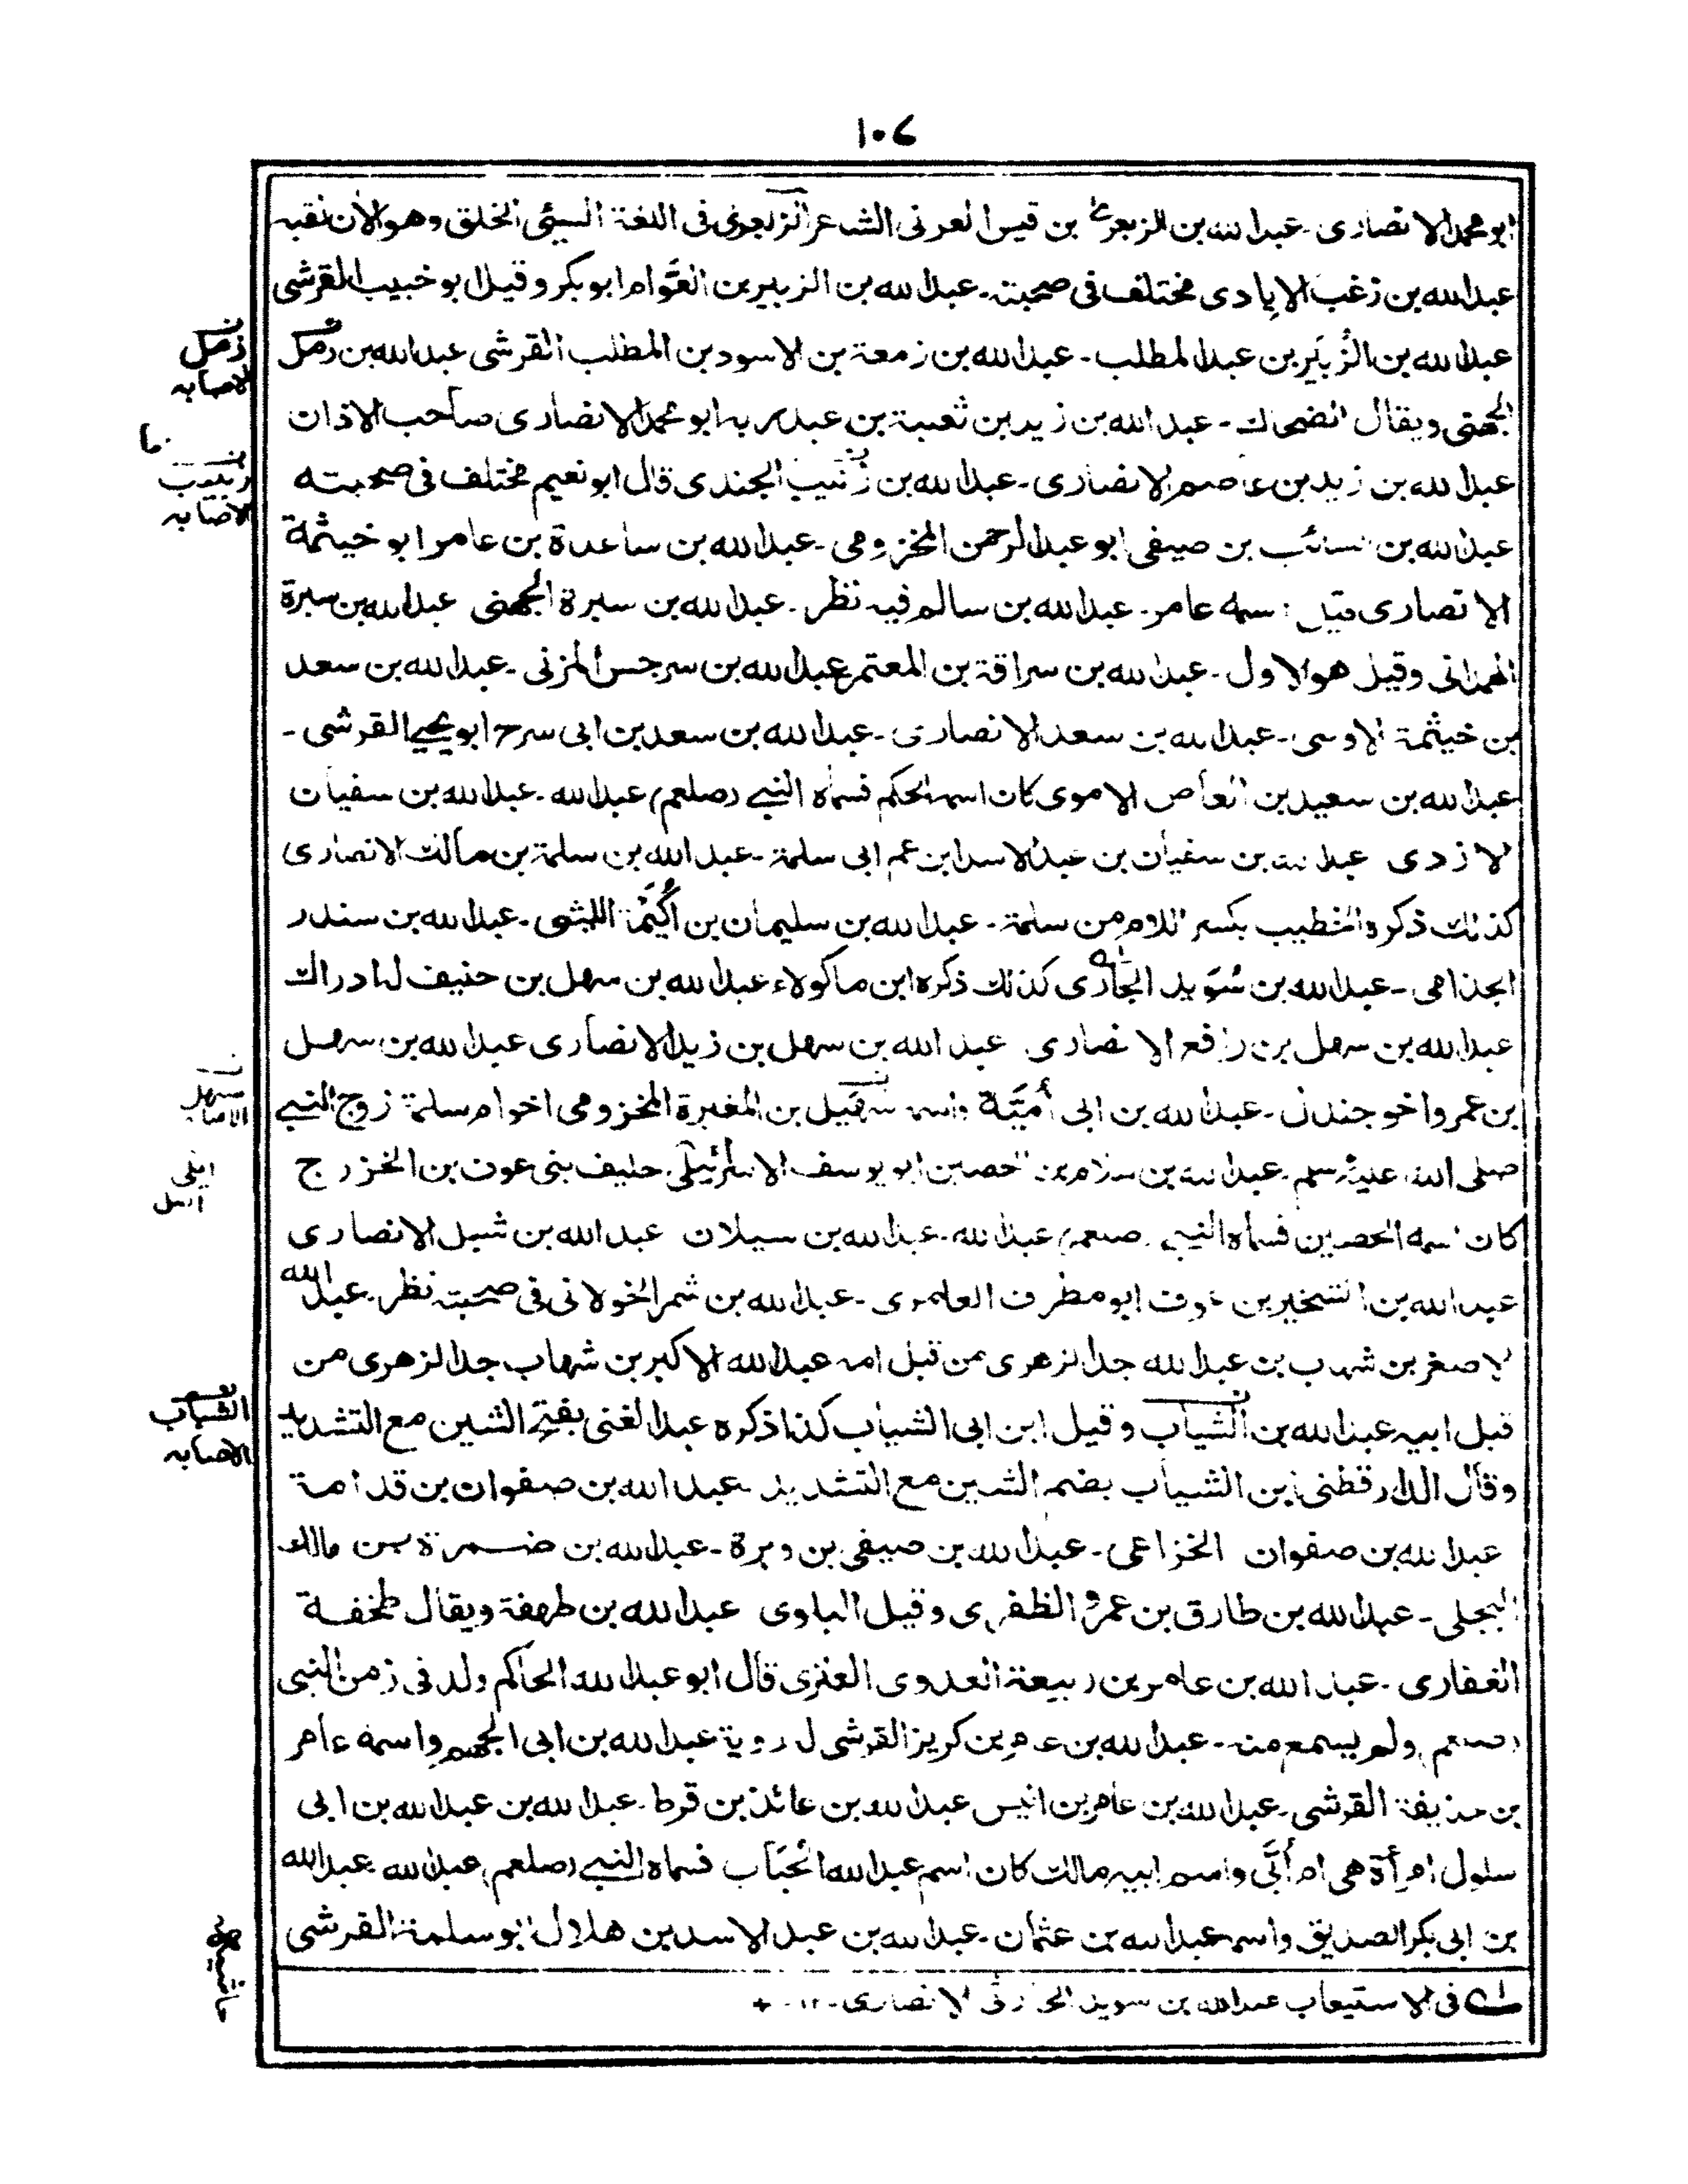 ۱۰۶
ابو محمد الانصاری۔ عبد الله بن الزبعری بن قیس الشاعر الزبعری فی اللغة السیئی الخلق وهو الآن لقبه
عبد الله بن زغب الایادی مختلف فی صحبته۔ عبد الله بن الزبیر بن العَوَّام ابوبکر وقیل ابو خبیب القرشی
عبد الله بن الزُبَیر بن عبد المطلب۔ عبد الله بن زمعة بن الاسود بن المطلب القرشی عبد الله بن زمل
الجهنی ویقال الضحاك۔ عبد الله بن زید بن ثعلبة بن عبد ربه ابو محمد الانصاری صاحب الاذان
عبد الله بن زید بن عاصم الانصاری۔ عبد الله بن زنیب الجندی قال ابو نعیم مختلف فی صحبته
عبد الله بن السائب بن صیفی ابو عبد الرحمن المخزومی۔ عبد الله بن ساعدة بن عامر ابو خیثمة
الانصاری قیل اسمه عامر۔ عبد الله بن سالم فیه نظر۔ عبد الله بن سبرة الجهنی عبد الله بن سبرة
الهمدانی وقیل هو الاول۔ عبد الله بن سراقة بن المعتمر عبد الله بن سرجس المزنی۔ عبد الله بن سعد
بن خیثمة الاوسی۔ عبد الله بن سعد الانصاری۔ عبد الله بن سعد بن ابی سرح ابو یحیے القرشی۔
عبد الله بن سعید بن العاص الاموی کان اسمه الحکم فسماه النبے (صلعم) عبد الله۔ عبد الله بن سفیان
الازدی عبد الله بن سفیان بن عبد الاسد ابن عم ابی سلمة۔ عبد الله بن سلمة بن مالك الانصاری
کذلك ذکره الخطیب بکسر اللام من سلمة۔ عبد الله بن سلیمان بن اُکَیْمَة اللیثی۔ عبد الله بن سندر
الجذامی۔ عبد الله بن سُوَید الجاری کذلك ذکره ابن ماکولاء عبد الله بن سهل بن حنیف له ادراك
عبد الله بن سهل بن رافع الانصاری عبد الله بن سهل بن زید الانصاری عبد الله بن سهل
بن عمرو اخو جندل۔ عبد الله بن ابی أُمَیَّة واسمه سهیل بن المغیرة المخزومی اخو ام سلمة زوج النبے
صلی الله علیه وسلم۔ عبد الله بن سلام بن الحصین ابو یوسف الاسرائیلی حلیف بنی عوف بن الخزرج
کان اسمه الحصین فسماه النبے (صلعم) عبد الله۔ عبد الله بن سیلان عبد الله بن شبل الانصاری
عبد الله بن الشخیر بن عوف ابو مطرف العامری۔ عبد الله بن شمر الخولانی فی صحبته نظر۔ عبد الله
الاصغر بن شهاب بن عبد الله جد الزهری من قبل امه عبد الله الاکبر بن شهاب جد الزهری من
قبل ابیه عبد الله بن الشیاب وقیل ابن ابی الشیاب کذا ذکره عبد الغنی بفتح الشین مع التشدید
وقال الدارقطنی ابن الشیاب بضم الشین مع التشدید۔ عبد الله بن صفوان بن قدامة
عبد الله بن صفوان الخزاعی۔ عبد الله بن صیفی بن وبرة۔ عبد الله بن ضمرة بن مالك
البجلی۔ عبد الله بن طارق بن عمرو الظفری وقیل البلوی عبد الله بن طهفة ویقال طخفة
الغفاری۔ عبد الله بن عامر بن ربیعة العدوی العنزی قال ابو عبد الله الحاکم ولد فی زمن النبی
(صلعم) ولم یسمع منه۔ عبد الله بن عامر بن کریز القرشی له رویة عبد الله بن ابی الجهم واسمه عامر
بن حذیفة القرشی۔ عبد الله بن عامر بن انیس عبد الله بن عائذ بن قرط۔ عبد الله بن عبد الله بن ابی
سلول امرأة هی ام أُبَیّ واسم ابیه مالك کان اسم عبد الله الحُبَاب فسماه النبے (صلعم) عبد الله عبد الله
بن ابی بکر الصدیق واسمه عبد الله بن عثمان۔ عبد الله بن عبد الاسد بن هلال ابو سلمة القرشی
فی الاستیعاب عبد الله بن سوید الحارثی الانصاری۔ ۱۲
زمل
الاصابه
زبیب
الاصابه
سهل
الاصابه
الشیاب
الاصابه
حاشیه